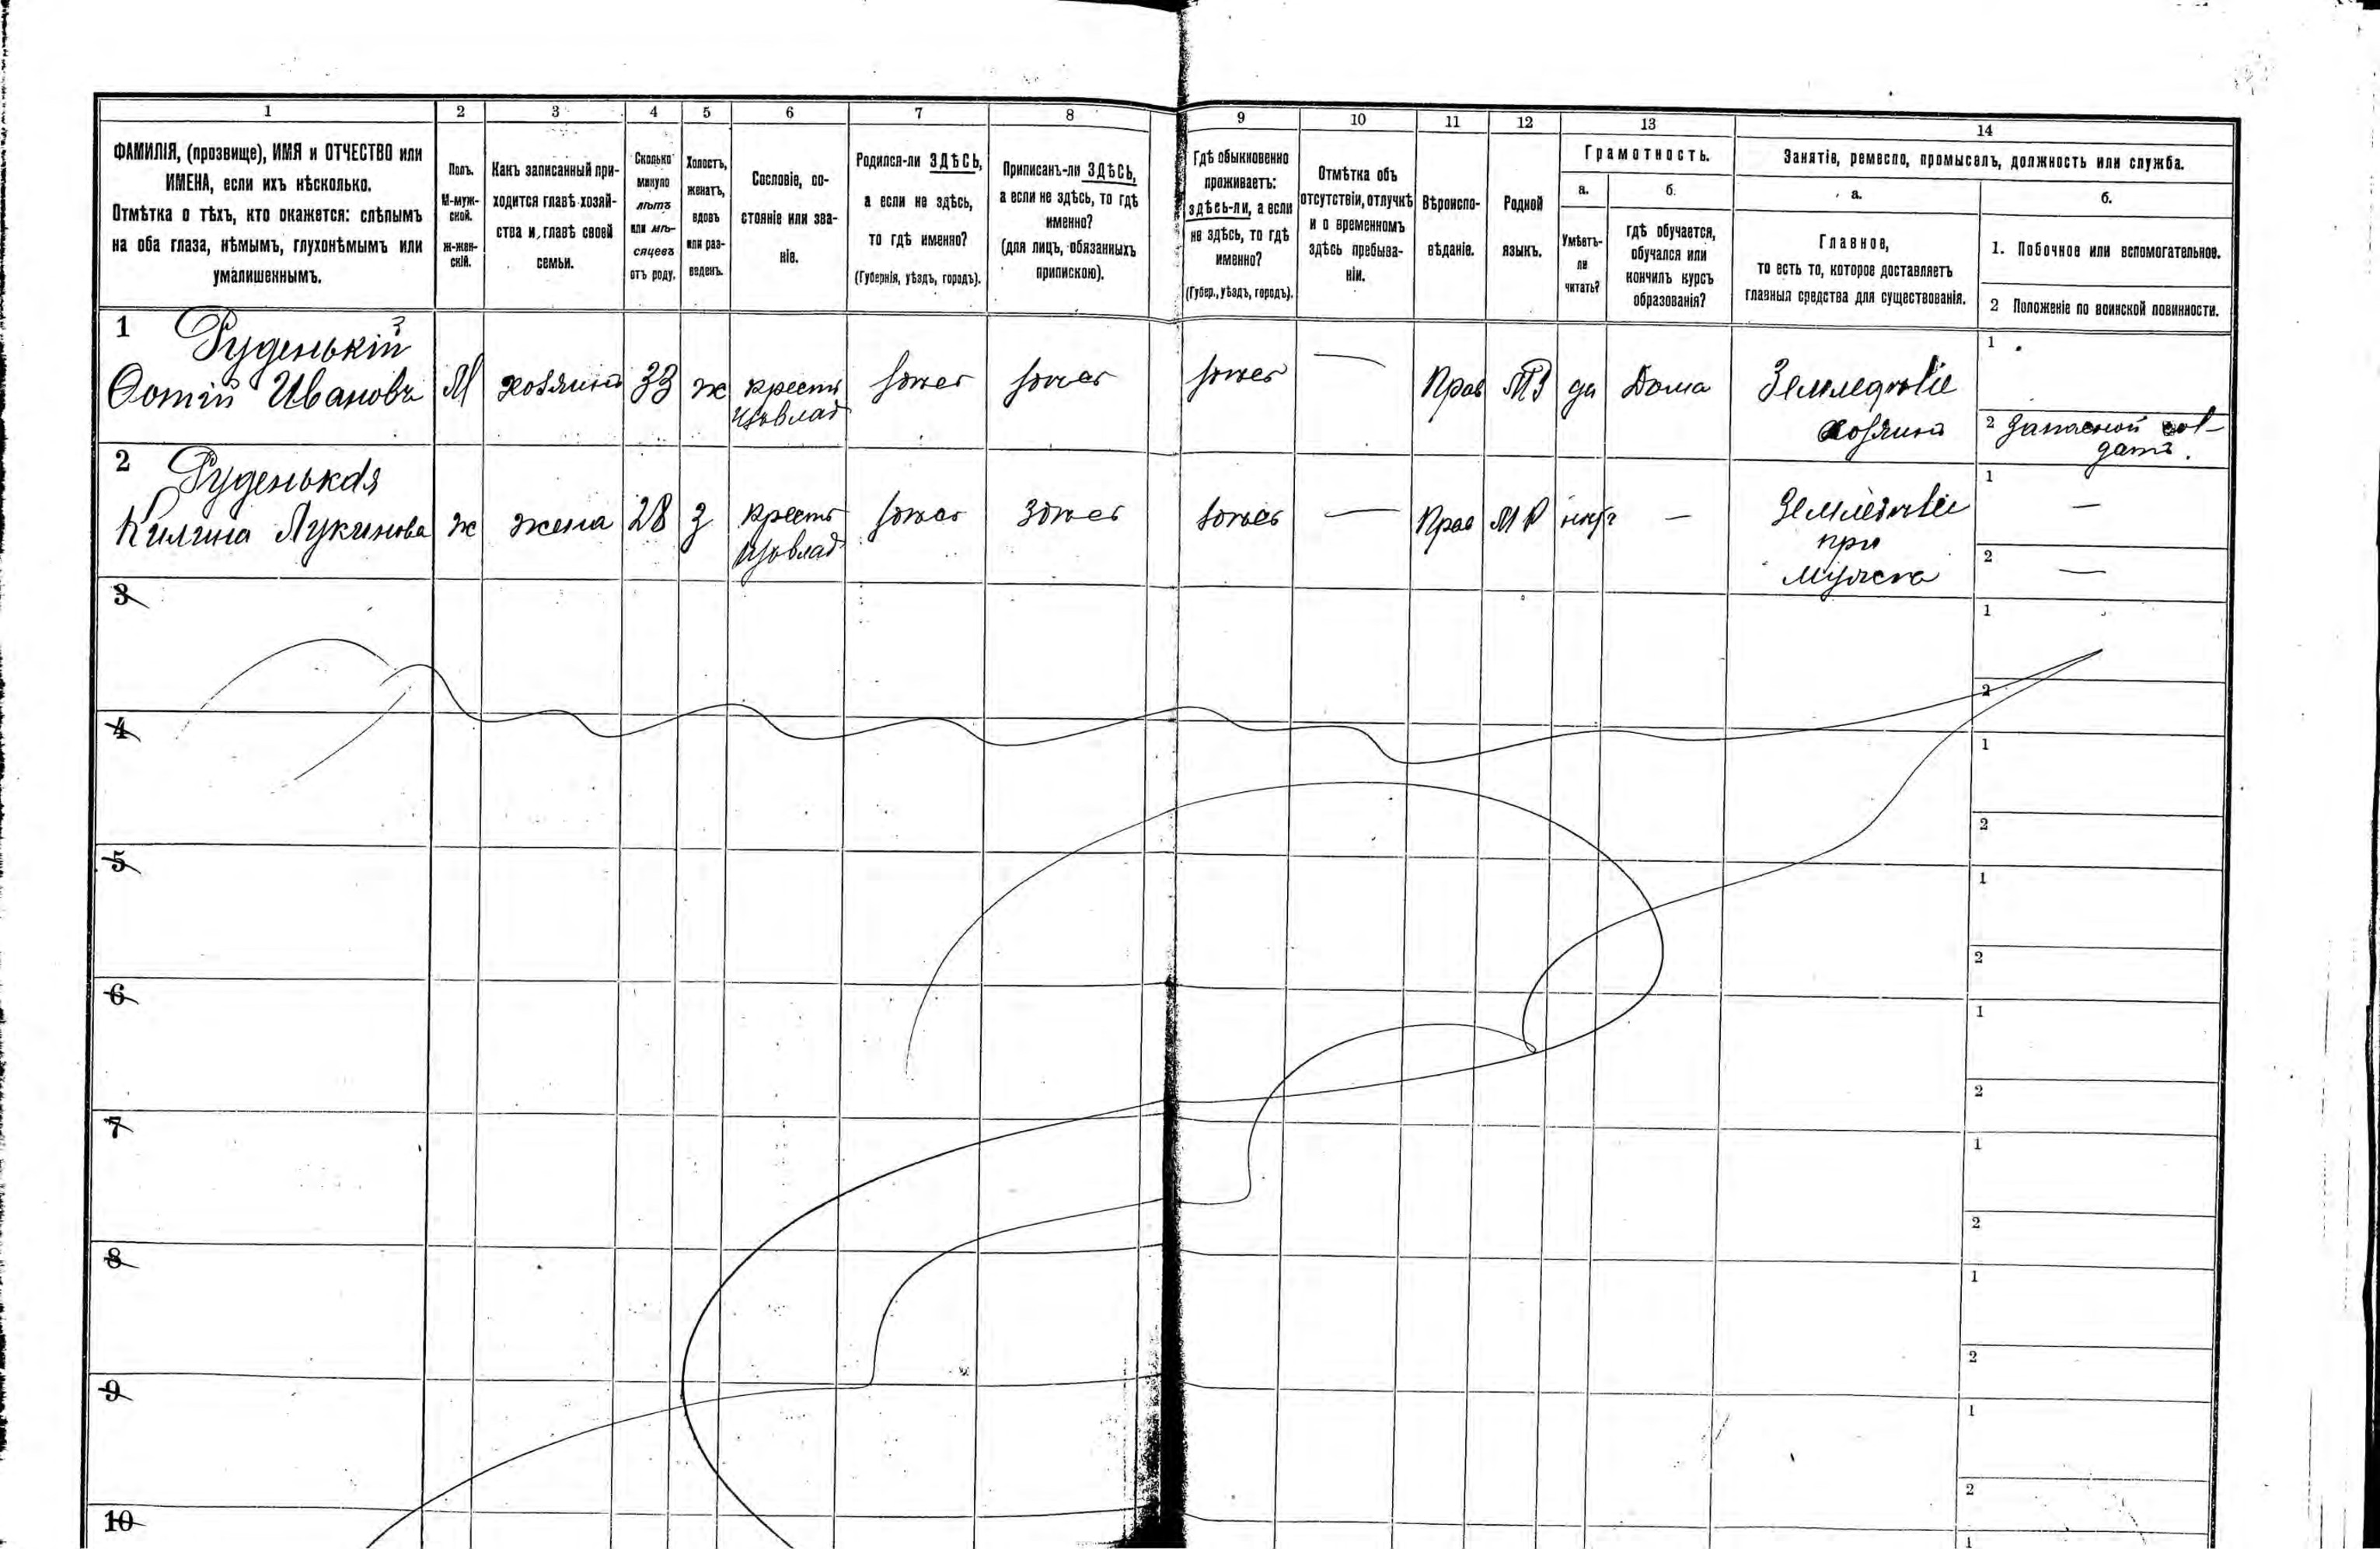 1
2
3
4
5
6
7
8
ФАМИЛІЯ, (прозвище), ИМЯ и ОТЧЕСТВО или
ИМЕНА, если ихъ нѣсколько.
Отмѣтка о тѣхъ, кто окажется: слѣпымъ
на оба глаза, нѣмымъ, глухонѣмымъ или
умалишеннымъ.
Полъ.
М-муж-
ской.
ж-жен-
скій.
Какъ записанный при-
ходится главѣ хозяй-
ства и главѣ своей
семьи.
Сколько
минуло
лѣтъ
или мѣ-
сяцевъ
отъ роду.
Холостъ,
женатъ,
вдовъ
или раз-
веденъ.
Сословіе, со-
стояніе или зва-
ніе.
Родился-ли ЗДѢСЬ,
а если не здѣсь,
то гдѣ именно?
(Губернія, уѣздъ, городъ).
Приписанъ-ли ЗДѢСЬ,
а если не здѣсь, то гдѣ
именно?
(для лицъ, обязанныхъ
припискою).
9
10
11
12
13
14
Гдѣ обыкновенно
проживаетъ:
здѣсь-ли, а если
не здѣсь, то гдѣ
именно?
(Губер., уѣздъ, городъ).
Отмѣтка объ
отсутствіи, отлучкѣ
и о временномъ
здѣсь пребыва-
ніи.
Вѣроиспо-
вѣданіе.
Родной
языкъ.
Грамотность.
а.
б.
Умѣетъ-
ли
читать?
гдѣ обучается,
обучался или
кончилъ курсъ
образованія?
Занятіе, ремесло, промыселъ, должность или служба.
а.
б.
Главное,
то есть то, которое доставляетъ
главныя средства для существованія.
1. Побочное или вспомогательное.
2 Положеніе по воинской повинности.
1 Руденькій
Ѳотій Ивановъ М хозяинъ 33 ж крестъ
да Дома
Прав
Земледѣліе
хозяинъ
1
2 Запасной сол-
датъ.
2 Руденькая
Лукинова ж жена 28 з крестъ
Прав МР — Земледѣліе
при
1 —
2 —
3
1
2
4
1
2
5
1
2
6
1
2
7
1
2
8
1
2
9
1
2
10
1